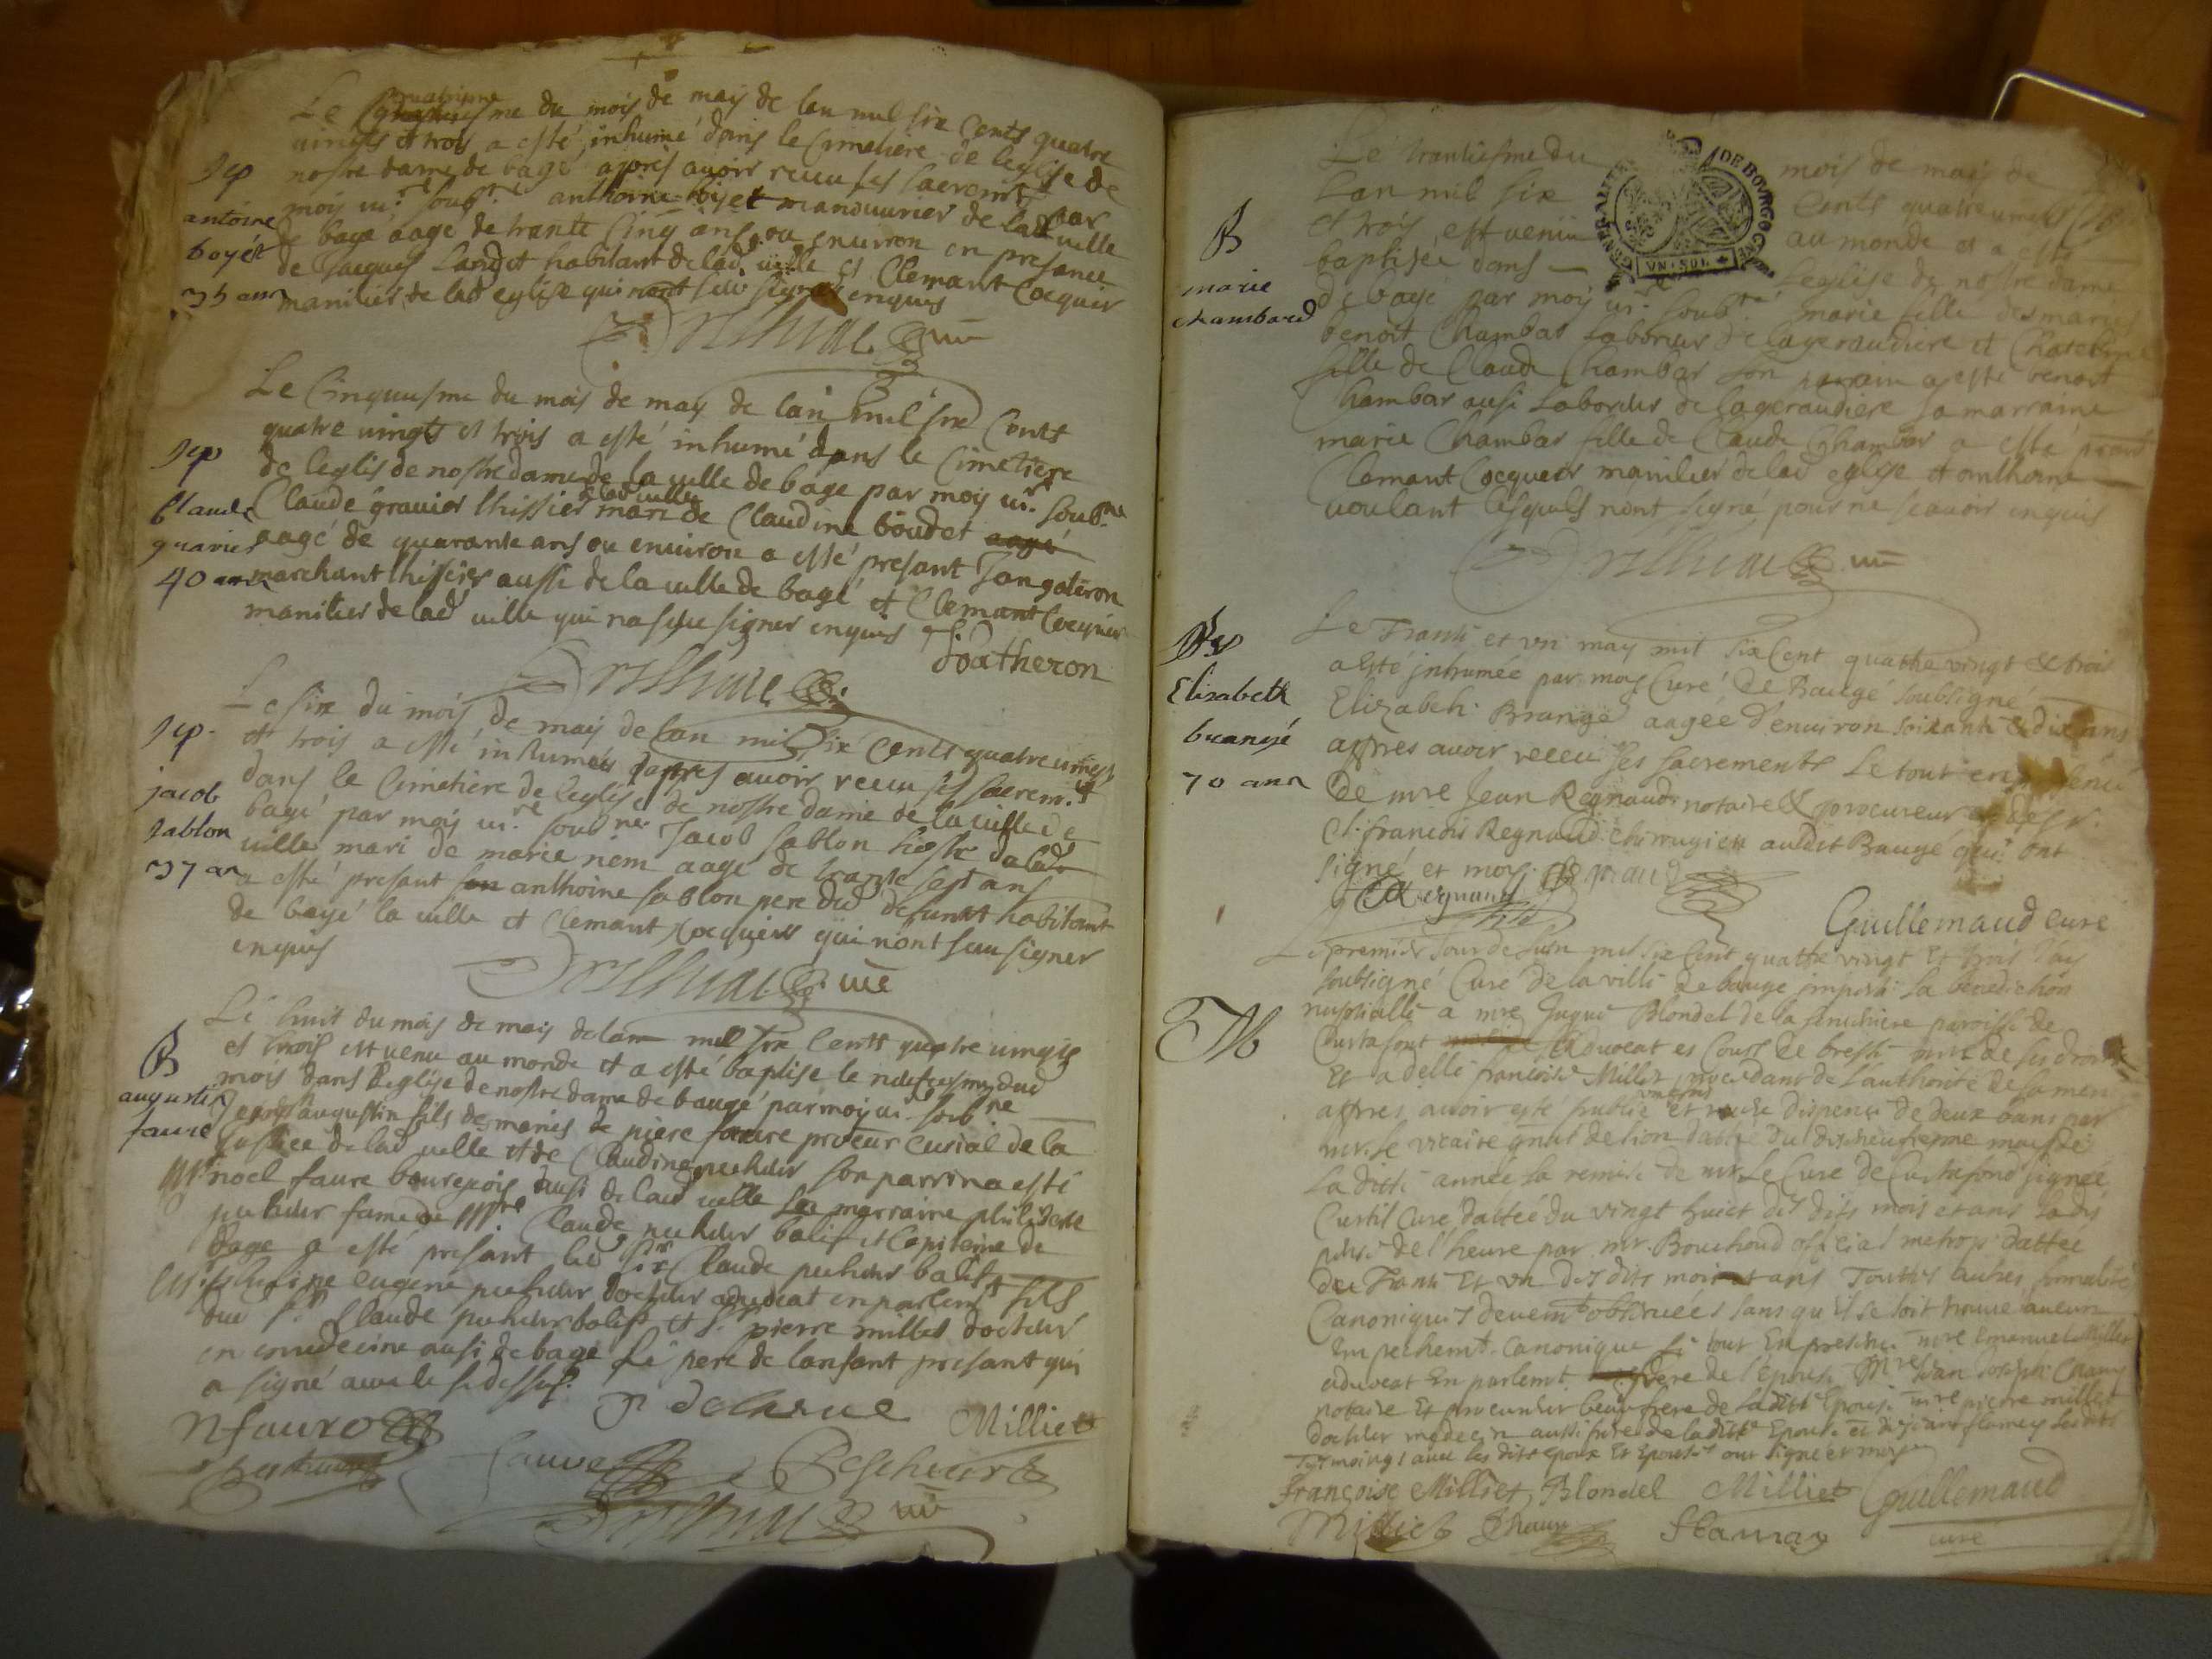 Le quatriesme du mois de may de lan mil six cents quatre
vingts et trois a esté inhumé dans le cimetiere de leglise de
nostre dame de bagé apres avoir receu ses sacremts par
moy vi.re soub.né anthoine boyet manouvrier de lad ville
de bagé aagé de trante cinq ans ou environ en presance
de Jacques habitant de lad ville et Clemant Cocquier
manilier de lad eglise qui nont sceu signer enquis
Sep
antoine
boyet
35 ans
Le cinquiesme du mois de may de lan mil six cents
quatre vingts et trois a esté inhumé dans le cimetiere
de leglise de nostre dame de la ville de bagé par moy vi.re soub.né
Claude gravier thissier de lad ville mari de Claudine boudet aagé
aagé de quarante ans ou environ a esté presant Jan gateron
marchant thissier aussi de la ville de bagé et Clemant Cocquier
manilier de lad ville qui na sceu signer enquis
Sep
Claude
gravier
40 ans
Le six du mois de may de lan mil six cents quatre vingt
et trois a esté inhumé apres avoir receu ses sacrem.ts
dans le cimetiere de leglise de nostre dame de la ville de
bagé par moy vi.re soub.né Jacob sablon de lad
ville mari de marie nem aagé de trante sept ans
a esté presant son anthoine sablon pere dud defunct habitant
de bagé la ville et Clemant Cocquier qui nont sceu signer
enquis
Sep.
jacob
sablon
37 an
Le huit du mois de may de lan mil six cents quatre vingts
et trois est venu au monde et a esté baptisé le dud
mois dans leglise de nostre dame de baugé par moy vi. soub.né
augustin fils des mariés de piere faure procur curial de la
justice de lad ville et de Claudine pecheur son parrin a esté
M.re noel faure bourgeois aussi de lad ville sa marraine philiberte
pecheur fame de M.re Claude pecheur balif et Capitaine de
bagé a esté presant led sir Claude pecheur balif
eugene pecheur docteur advocat en parlem.t fils
dud S.r Claude pecheur balif et S.r pierre milliet docteur
en medecine aussi de bagé le pere de lanfant presant qui
a signé avec le sidessus.
B
augustin
faure
N faure
P delarue
Milliet
faure
Pescheur
Le trantiesme du mois de may de
lan mil six cents quatre vingts
et trois est venue au monde et a esté
baptisée dans leglise de nostre dame
de bagé par moy vi.re soub.né marie fille des mariés
benoit Chambar laboreur de lageraudiere et
fille de Claude Chambar son parrain a esté benoit
Chambar aussi laboreur de lageraudiere sa marraine
marie Chambar fille de Claude Chambar a esté presant
Clemant Cocquier manilier de lad eglise et anthoine
voulant lesquels nont signé pour ne scavoir enquis
B
marie
chambard
GENERALITE DE BOURGOGNE
UN SOL
Le Trante et un may mil six cent quattre vingt et trois
a esté inhumée par moy Curé de Baugé soubsigné
Elizabeh Brangé aagée d'environ soixante & dix ans
apres avoir receu ses sacrements Le tout en presence
De mre Jean Regnaud notaire & procureur et de Sr.
Cl. francois Regnaud chirurgien audit Baugé qui ont
signé et moy.
Elizabeth
brangé
70 ans
Regnaud
Guillemaud curé
Le premier Jour de Juin mil six cent quattre vingt et trois Jay
soubsigné Curé de la ville de baugé imparti la benediction
nuptialle a mre Blondel de la paroisse de
Curtafont advocat es Cours de bresse mre de ses droits
Et a delle francoise Milliet procedant de l'authorité de sa mere
apres avoir esté publié une fois et dispence de deux bans par
mr. le vicaire gnal de lion dattée du dixneufiesme may de
La ditte année La remise de mr. Le Curé de Curtafond signée
Curtil Curé dattée du vingt huict des dits mois et an
de l'heure par mr. Bouchoud official metrop. dattée
du Trante Et un des dits mois et ans Touttes autres formalités
Canoniques devem.t observées sans qu'il se soit trouvé aucun
Empechem.t Canonique Le tout En presence mre Emanuel Milliet
advocat En parlem.t frere de l'epouse Mre Jean Joseph
notaire Et procureur beau frere de laditte Epouse mre pierre milliet
docteur medecin aussi frere de la ditte Epouse
Tesmoings avec les dits epoux Et Epouse ont signé et moy
M
françoise Milliet Blondel Milliet Guillemaud
curé
Milliet